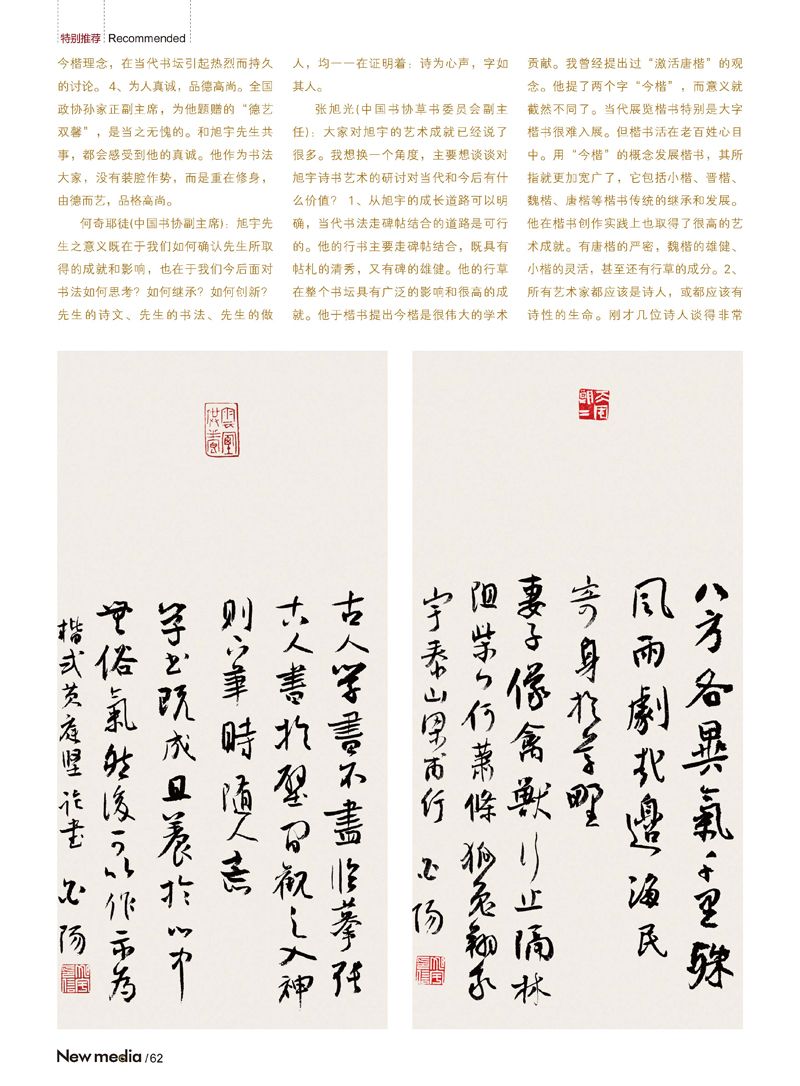 特别推荐 Recommended
今楷理念，在当代书坛引起热烈而持久
的讨论。 4、为人真诚，品德高尚。全国
政协孙家正副主席，为他题赠的“德艺
双馨”，是当之无愧的。和旭宇先生共
事，都会感受到他的真诚。他作为书法
大家，没有装腔作势，而是重在修身，
由德而艺，品格高尚。
何奇耶徒(中国书协副主席)：旭宇先
生之意义既在于我们如何确认先生所取
得的成就和影响，也在于我们今后面对
书法如何思考？如何继承？如何创新？
先生的诗文、先生的书法、先生的做
人，均一一在证明着：诗为心声，字如
其人。
张旭光(中国书协草书委员会副主
任)：大家对旭宇的艺术成就已经说了
很多。我想换一个角度，主要想谈谈对
旭宇诗书艺术的研讨对当代和今后有什
么价值？ 1、从旭宇的成长道路可以明
确，当代书法走碑帖结合的道路是可行
的。他的行书主要走碑帖结合，既具有
帖札的清秀，又有碑的雄健。他的行草
在整个书坛具有广泛的影响和很高的成
就。他于楷书提出今楷是很伟大的学术
贡献。我曾经提出过“激活唐楷”的观
念。他提了两个字“今楷”，而意义就
截然不同了。当代展览楷书特别是大字
楷书很难入展。但楷书活在老百姓心目
中。用“今楷”的概念发展楷书，其所
指就更加宽广了，它包括小楷、晋楷、
魏楷、唐楷等楷书传统的继承和发展。
他在楷书创作实践上也取得了很高的艺
术成就。有唐楷的严密，魏楷的雄健、
小楷的灵活，甚至还有行草的成分。2、
所有艺术家都应该是诗人，或都应该有
诗性的生命。刚才几位诗人谈得非常
八方各異氣千里殊
風雨劇哉邊海民
寄身於草野
妻子像禽獸行止隔林
阻柴門何蕭條狐兔翔我
宇泰山梁甫行
古人學書不盡临摹張
古人書於壁間觀之入神
則下筆時随人意
学书既成且養於心中
無俗氣然後可以作示為
楷式黄庭堅論書
New media / 62